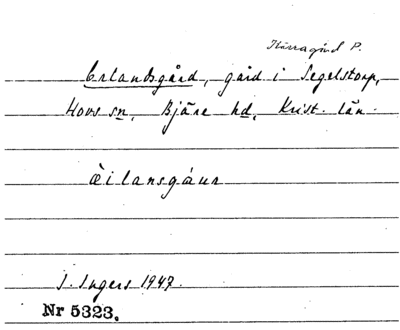 Härragård P.
Erlandsgård, gård i Segelstorp,
Hovs sn, Bjäre hd, Krist. län.
èilansgáur
I. Ingers 1947.
Nr 5323.